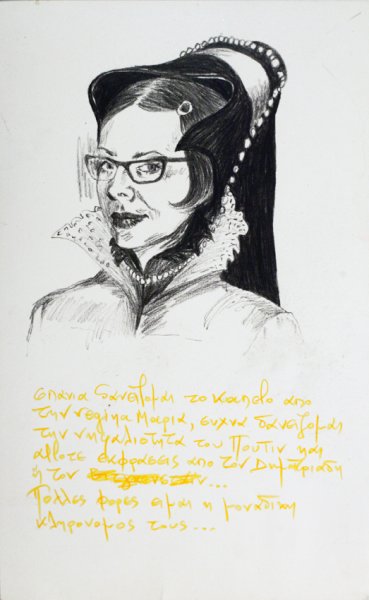 σπανια δανειζομαι το καπελο απο
την ρεgiνα Μαρια, συχνα δανειζομαι
την νηφαλιότητα του Πουτιν και
αλλοτε εκφρασεις απο τον Δημητριαδη
ή τον ...
Πολλες φορες ειμαι η μοναδικη
κληρονομος τους ...